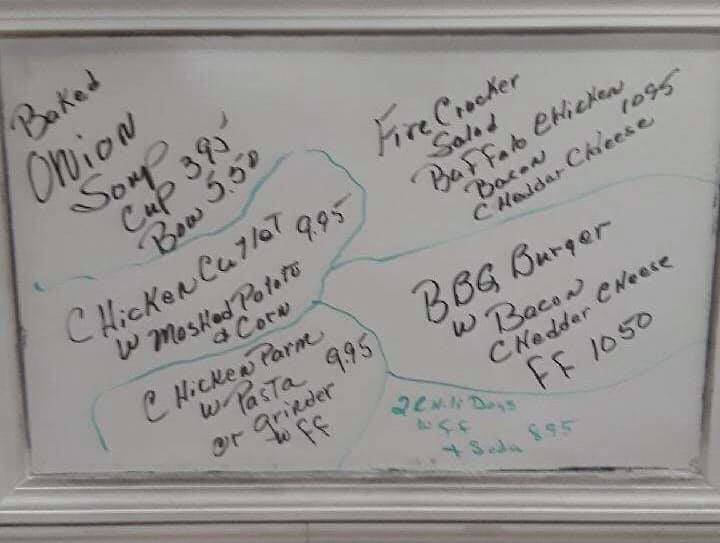 Baked
ONiON
Soup
Cup 395
Bow 5.50
Fire Cracker
Salad
Buffalo Chicken
Bacon 1095
Cheddar Cheese
CHicKeN CuTleT 9.95
w Mashed Potato
& Corn
BBQ Burger
w Bacon
CHeddar CHeese
FF 1050
CHicKen Parm
w-PasTa 9.95
or grinder
w FF
2 Chili Dogs
w FF
+ Soda 895